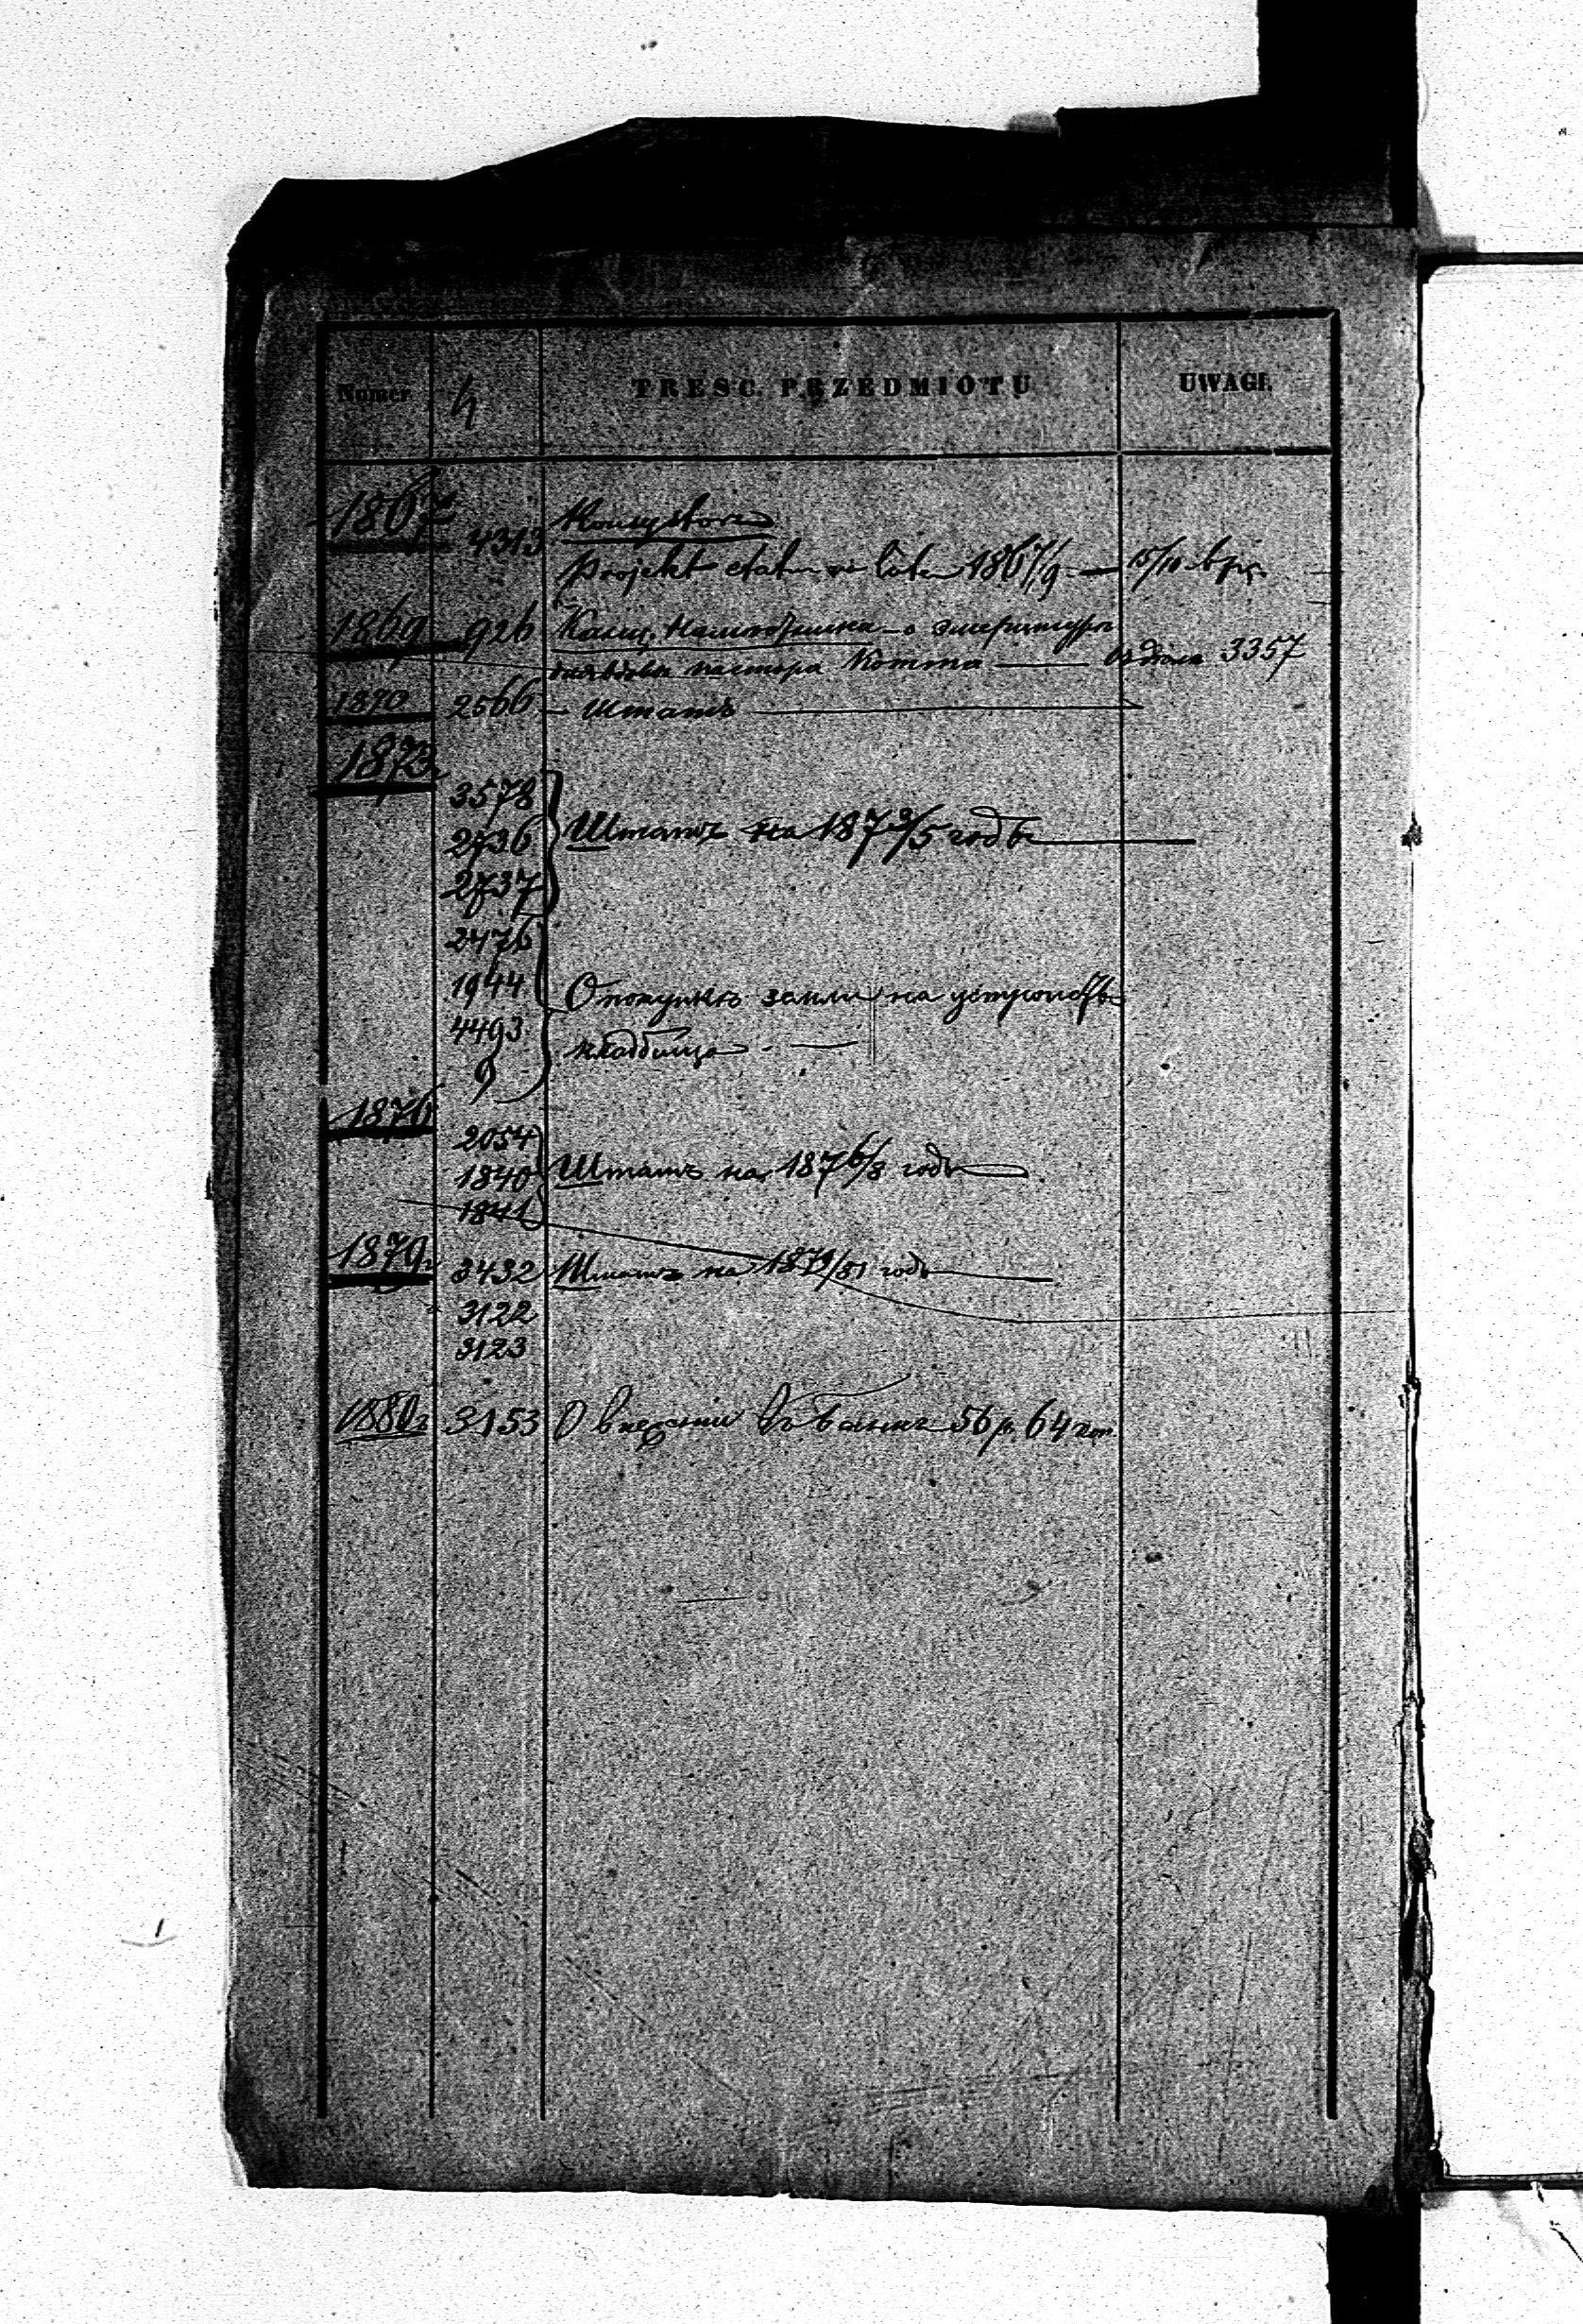 Numer TREŚĆ PRZEDMIOTU UWAGI.
1867
4313 Konsystorz
Projekt etatu na lata 1867/9 — 15/10
1869 926 Канц. Намѣстника – о эмеритурѣ
для вдовы пастора Котта — 3357
1870 2566 – Штатъ —
1873
3578
2736 Штатъ на 1873/5 годъ
2737
2476
1944 О покупкѣ земли на устройство
4493 кладбища —
9
1876
2054
1840 Штатъ на 1876/8 годъ
1841
1879г 3432 Штатъ на 1879/81 годъ
3122
3123
1880г 3153 О внесении въ Банкъ 56 р. 64 коп.